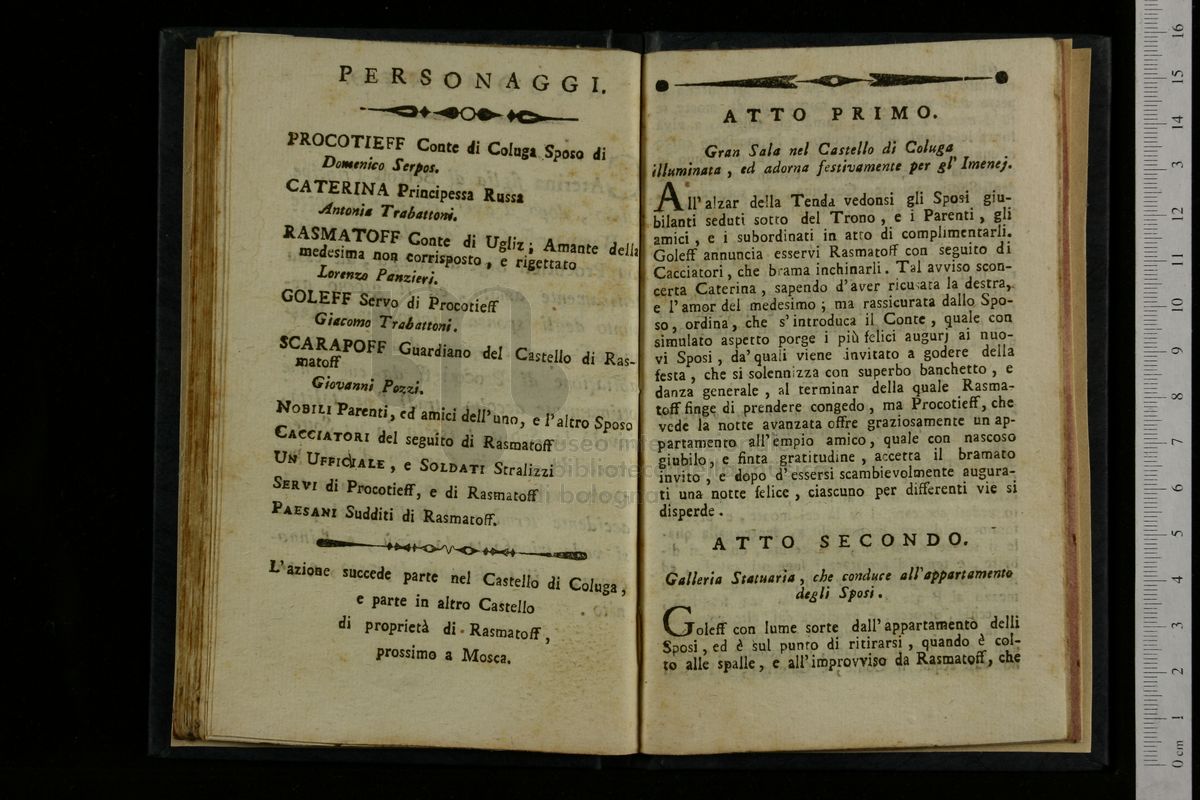 PERSONAGGI.
PROCOTIEFF Conte di Coluga Sposo di
Domenico Serpos.
CATERINA Principessa Russa
Antonia Trabattoni.
RASMATOFF Conte di Ugliz; Amante della
medesima non corrisposto, e rigettato
Lorenzo Panzieri.
GOLEFF Servo di Procotieff
Giacomo Trabattoni.
SCARAPOFF Guardiano del Castello di Ras-
matoff
Giovanni Pozzi.
NOBILI Parenti, ed amici dell'uno, e l'altro Sposo
CACCIATORI del seguito di Rasmatoff
UN UFFICIALE, e SOLDATI Stralizzi
SERVI di Procotieff, e di Rasmatoff
PAESANI Sudditi di Rasmatoff.
L'azione succede parte nel Castello di Coluga,
e parte in altro Castello
di proprietà di Rasmatoff,
prossimo a Mosca.
ATTO PRIMO.
Gran Sala nel Castello di Coluga
illuminata, ed adorna festivamente per gl' Imenej.
All' alzar della Tenda vedonsi gli Sposi giu-
bilanti seduti sotto del Trono, e i Parenti, gli
amici, e i subordinati in atto di complimentarli.
Goleff annuncia esservi Rasmatoff con seguito di
Cacciatori, che brama inchinarli. Tal avviso scon-
certa Caterina, sapendo d'aver ricusata la destra,
e l'amor del medesimo; ma rassicurata dallo Spo-
so, ordina, che s'introduca il Conte, quale con
simulato aspetto porge i più felici augurj ai nuo-
vi Sposi, da' quali viene invitato a godere della
festa, che si solennizza con superbo banchetto, e
danza generale, al terminar della quale Rasma-
toff finge di prendere congedo, ma Procotieff, che
vede la notte avanzata offre graziosamente un ap-
partamento all'empio amico, quale con nascoso
giubilo, e finta gratitudine, accetta il bramato
invito, e dopo d'essersi scambievolmente augura-
ti una notte felice, ciascuno per differenti vie si
disperde.
ATTO SECONDO.
Galleria Statuaria, che conduce all'appartamento
degli Sposi.
Goleff con lume sorte dall'appartamento delli
Sposi, ed è sul punto di ritirarsi, quando è col-
to alle spalle, e all'improvviso da Rasmatoff, che